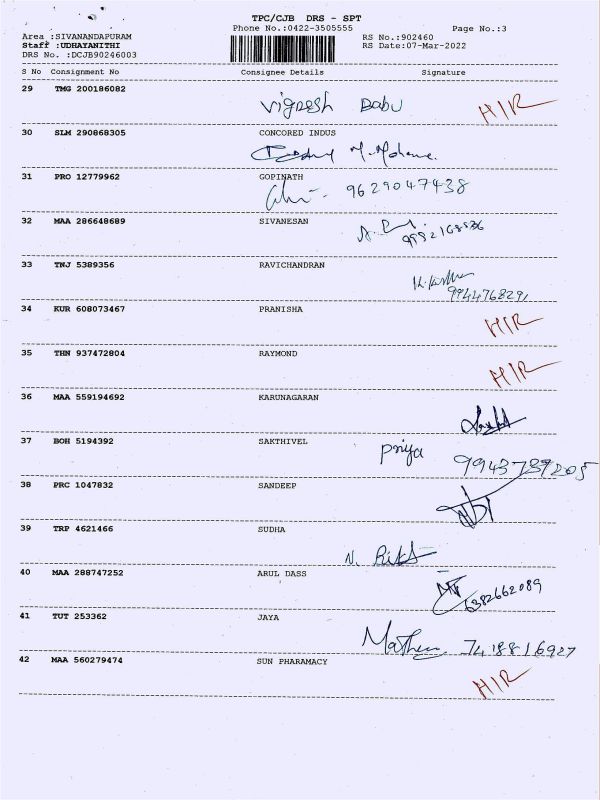 TPC/CJB DRS - SPT
Phone No.:0422-3505555 Page No.:3
Area :SIVANANDAPURAM RS No.:902460
Staff :UDHAYANITHI RS Date:07-Mar-2022
DRS No. :DCJB90246003
S No Consignment No Consignee Details Signature
29 TMG 200186082
Vignesh Babu H/R
30 SLM 290868305 CONCORED INDUS
M. Mohana.
31 PRO 12779962 GOPINATH
9629047438
32 MAA 286648689 SIVANESAN
33 TNJ 5389356 RAVICHANDRAN
9944768291
34 KUR 608073467 PRANISHA
H/R
35 THN 937472804 RAYMOND
H/R
36 MAA 559194692 KARUNAGARAN
37 BOH 5194392 SAKTHIVEL
Priya 9943739205
38 PRC 1047832 SANDEEP
39 TRP 4621466 SUDHA
40 MAA 288747252 ARUL DASS
6382662089
41 TUT 253362 JAYA
7418816927
42 MAA 560279474 SUN PHARAMACY
H/R